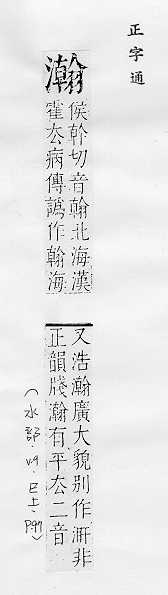 正字通
瀚
侯幹切音翰北海漢
霍厺病傳譌作翰海
又浩瀚廣大貌别作非
正韻牋瀚有平厺二音
(水部.v.9.巳上.P.99)